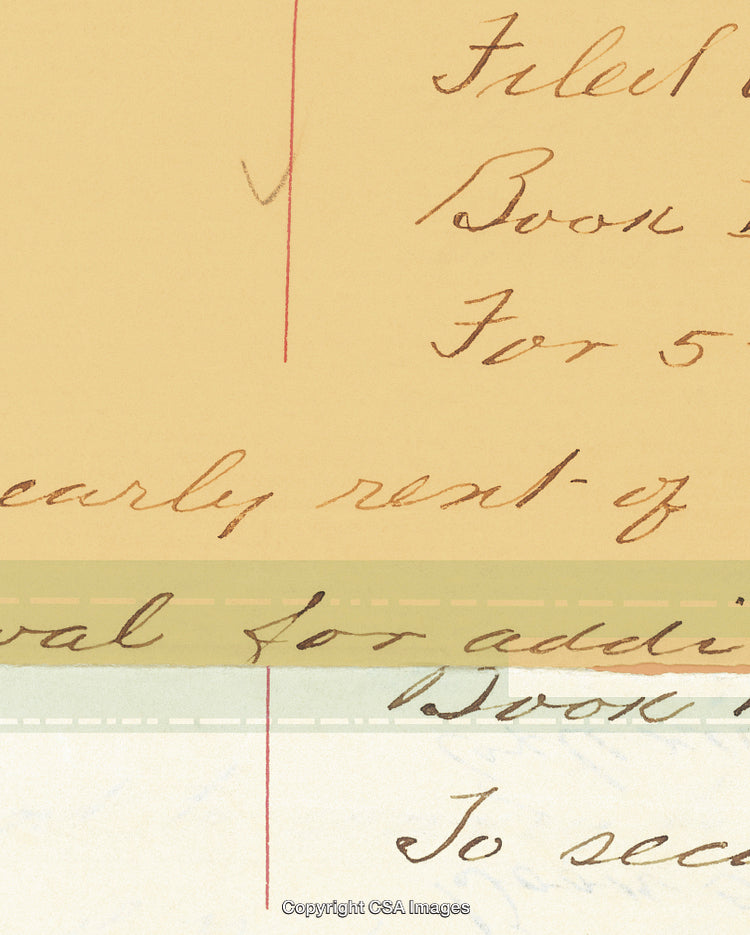 Filed
Book
For 5
early rent of
val for addi
Book
To secu
Copyright CSA Images